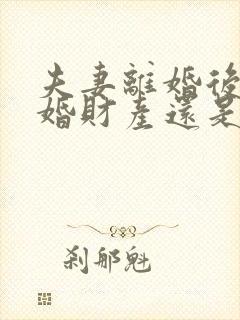 夫妻離婚後
婚財產還是
剎那魁